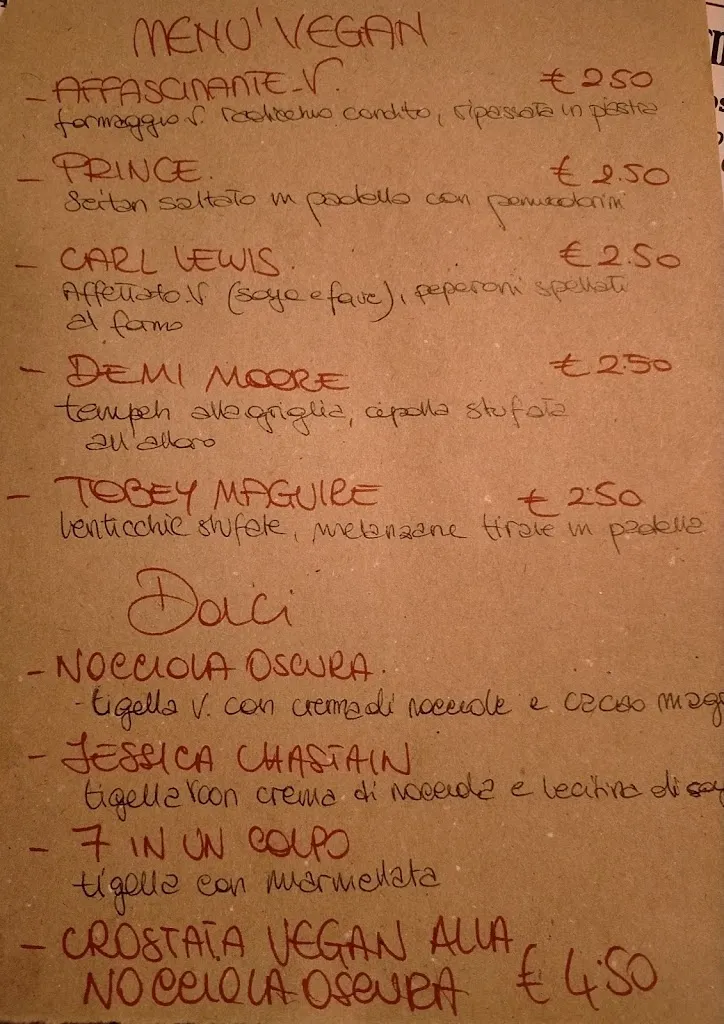 MENU' VEGAN
- AFFASCINANTE V. € 2.50
formaggio V. radicchio condito, ripassata in piastra
- PRINCE. € 2.50
Seitan saltato in padella con pomodorini
- CARL LEWIS. € 2.50
Affettato V (soya e fave), peperoni spellati
al forno
- DEMI MOORE € 2.50
tempeh alla griglia, cipolla stufata
all'alloro
- TOBEY MAGUIRE € 2.50
lenticchie stufate, melanzane tirate in padella
Dolci
- NOCCIOLA OSCURA.
- tigella V. con crema di nocciole e cacao mag
- JESSICA CHASTAIN
tigella V con crema di nocciola e lecitina di soy
- 7 IN UN COLPO
tigella con marmellata
- CROSTATA VEGAN ALLA
NOCCIOLA OSCURA € 4.50